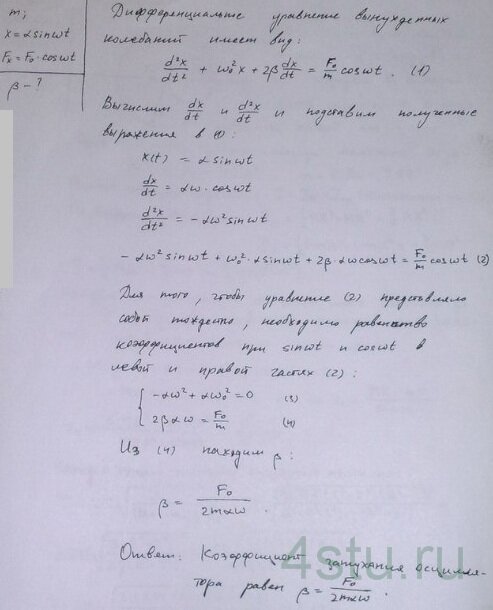 m;
x = αsinωt
Fₓ = F₀·cosωt
β - ?
Дифференциальное уравнение вынужденных
колебаний имеет вид:
d²x/dt² + ω₀²x + 2β dx/dt = F₀/m cosωt. (1)
Вычислим dx/dt и d²x/dt² и подставим полученные
выражения в (1):
x(t) = α sinωt
dx/dt = αω·cosωt
d²x/dt² = -αω² sinωt
-αω² sinωt + ω₀²·αsinωt + 2β·αωcosωt = F₀/m cosωt (2)
Для того, чтобы уравнение (2) представляло
собой тождество, необходимо равенство
коэффициентов при sinωt и cosωt в
левой и правой частях (2):
{ -αω² + αω₀² = 0 (3)
2βαω = F₀/m (4)
Из (4) находим β:
β = F₀/2mαω.
Ответ: Коэффициент затухания осцилля-
тора равен β = F₀/2mαω.
4stu.ru